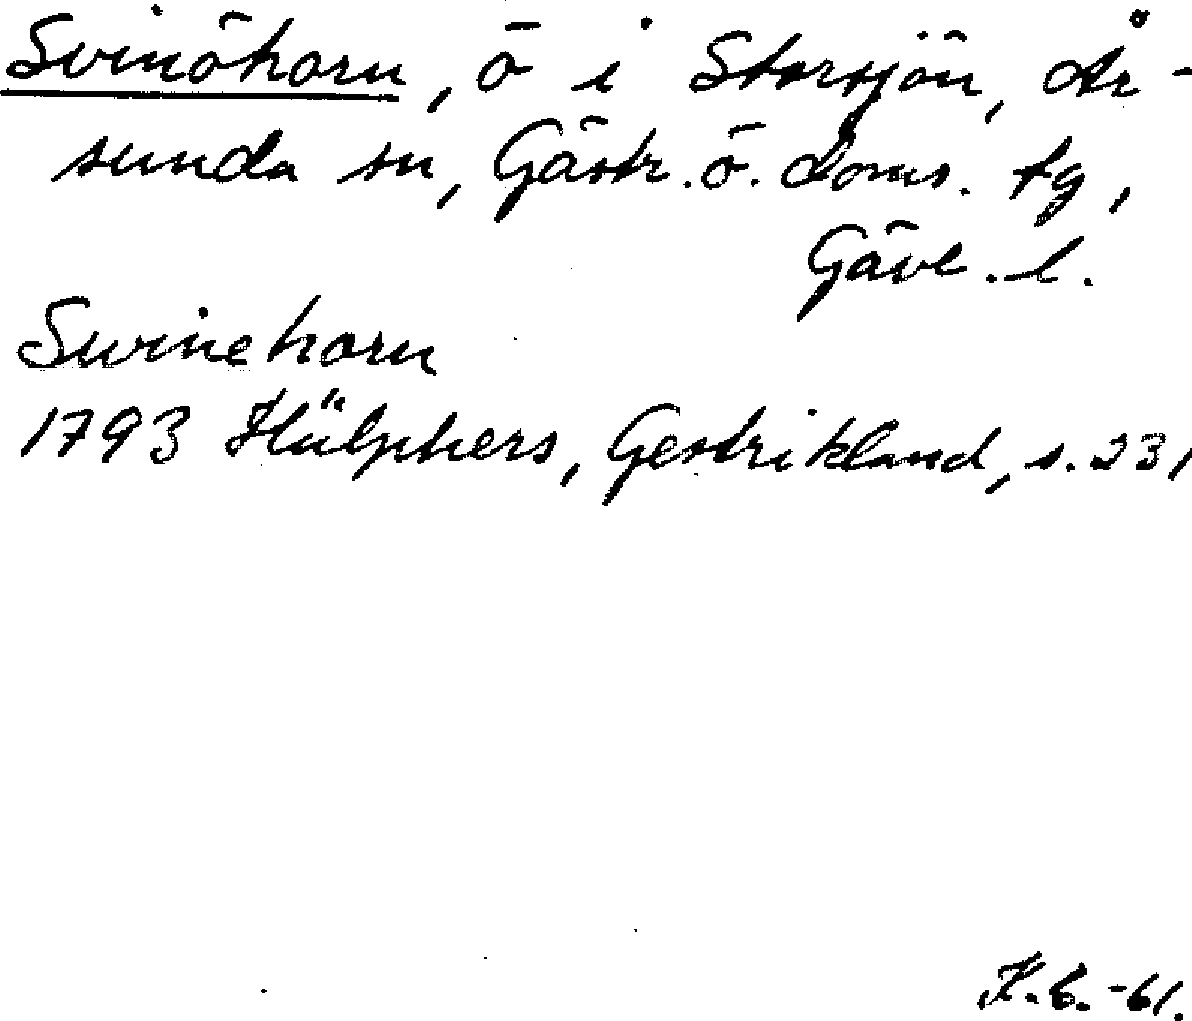 Svinöhorn, ö i Storsjön, År-
sunda sn, Gästr. ö. doms. tg,
Gävl. l.
Swinehorn
1793 Hülphers, Gestrikland, s. 231
-61.